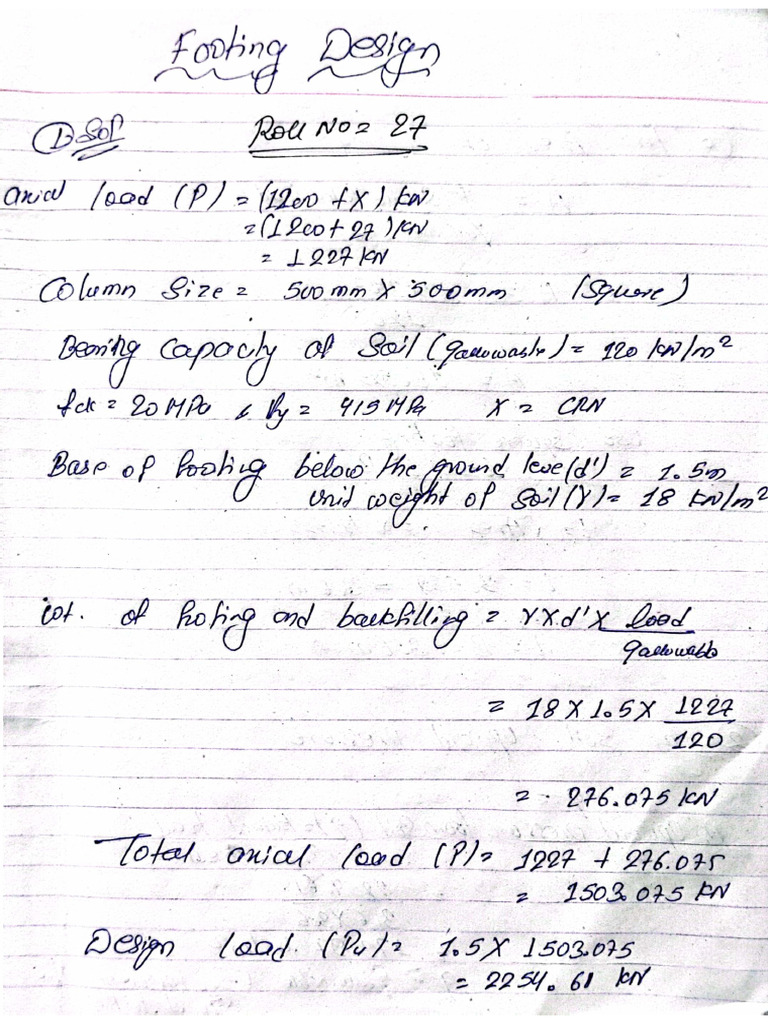 Footing Design
① Sol^n Roll No = 27
axial load (P) = (1200 + X) kN
= (1200 + 27) kN
= 1227 kN
Column Size = 500mm X 500mm (Square)
Bearing capacity of Soil (qallowable) = 120 kN/m²
fck = 20 MPa & fy = 415 MPa X = CRN
Base of footing below the ground level (d') = 1.5m
unit weight of Soil (γ) = 18 kN/m²
wt. of foting and backfilling = γ X d' X load / qallowable
= 18 X 1.5 X 1227 / 120
= 276.075 kN
Total axical load (P) = 1227 + 276.075
= 1503.075 kN
Design load (Pu) = 1.5 X 1503.075
= 2254.61 kN